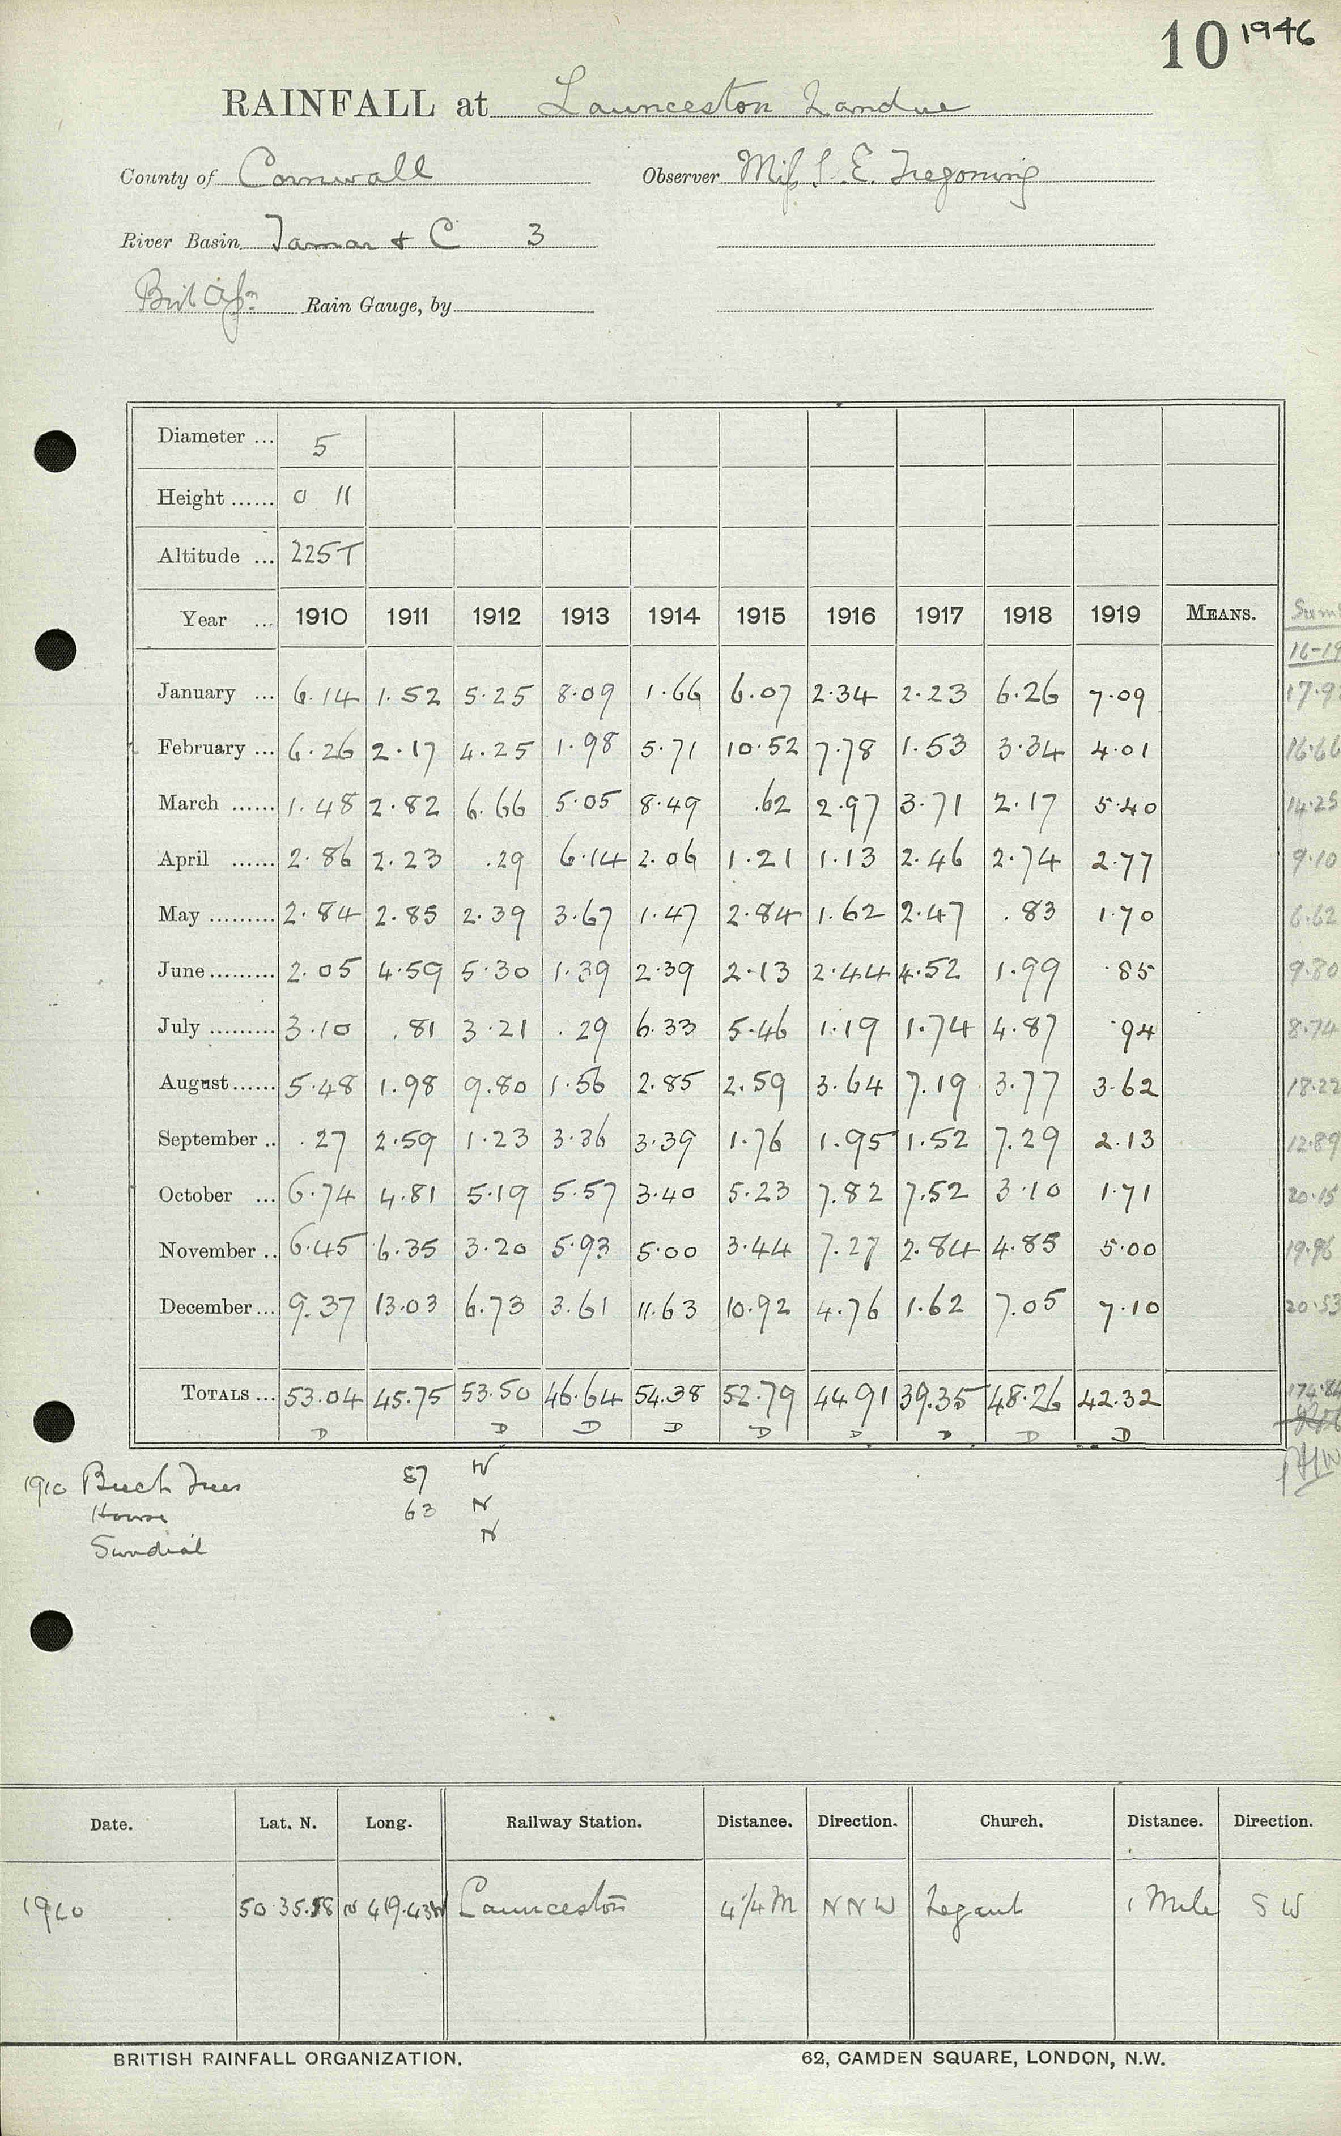 10 1946
RAINFALL at Launceston Landue
County of Cornwall Observer Miss S. E. Tregoning
River Basin Tamar + C 3
Brit Assn Rain Gauge, by
Diameter ... 5
Height ...... 0 11
Altitude ... 225 T
Year ... 1910 1911 1912 1913 1914 1915 1916 1917 1918 1919 MEANS.
16-19
January ... 6.14 1.52 5.25 8.09 1.66 6.07 2.34 2.23 6.26 7.09 17.9
February ... 6.26 2.17 4.25 1.98 5.71 10.52 7.78 1.53 3.34 4.01 16.66
March ...... 1.48 2.82 6.66 5.05 8.49 .62 2.97 3.71 2.17 5.40 14.25
April ...... 2.86 2.23 .29 6.14 2.06 1.21 1.13 2.46 2.74 2.77 9.10
May ......... 2.84 2.85 2.39 3.67 1.47 2.84 1.62 2.47 .83 1.70 6.62
June......... 2.05 4.59 5.30 1.39 2.39 2.13 2.44 4.52 1.99 .85 9.80
July ......... 3.10 .81 3.21 .29 6.33 5.46 1.19 1.74 4.87 .94 8.74
August...... 5.48 1.98 9.80 1.56 2.85 2.59 3.64 7.19 3.77 3.62 18.22
September .. .27 2.59 1.23 3.36 3.39 1.76 1.95 1.52 7.29 2.13 12.89
October ... 6.74 4.81 5.19 5.57 3.40 5.23 7.82 7.52 3.10 1.71 20.15
November .. 6.45 6.35 3.20 5.93 5.00 3.44 7.27 2.84 4.85 5.00 19.96
December ... 9.37 13.03 6.73 3.61 11.63 10.92 4.76 1.62 7.05 7.10 20.53
TOTALS ... 53.04 45.75 53.50 46.64 54.38 52.79 44.91 39.35 48.26 42.32 174.84
D D D D D D D D D
1910 Beech Trees 57 W
House 63 N
Sundial N
Date. Lat. N. Long. Railway Station. Distance. Direction. Church. Distance. Direction.
1910 50 35.58 N 4 19.43 W Launceston 4 1/4 M NNW Lezant 1 Mile SW
BRITISH RAINFALL ORGANIZATION. 62, CAMDEN SQUARE, LONDON, N.W.